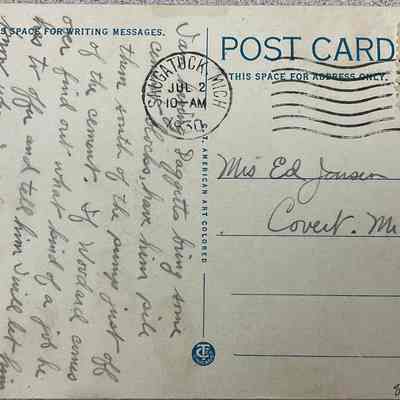 THIS SPACE FOR WRITING MESSAGES.
POST CARD
THIS SPACE FOR ADDRESS ONLY.
SAUGATUCK, MICH
JUL 2
10-AM
C.T. AMERICAN ART COLORED
Daggetts bring some
blocks, have him pile
them south of the pump just off
of the cement. If Woodard comes
out find out what kind of a job he
has to offer and tell him I will let him
know
Mrs Ed Jansen
Covert. Mi